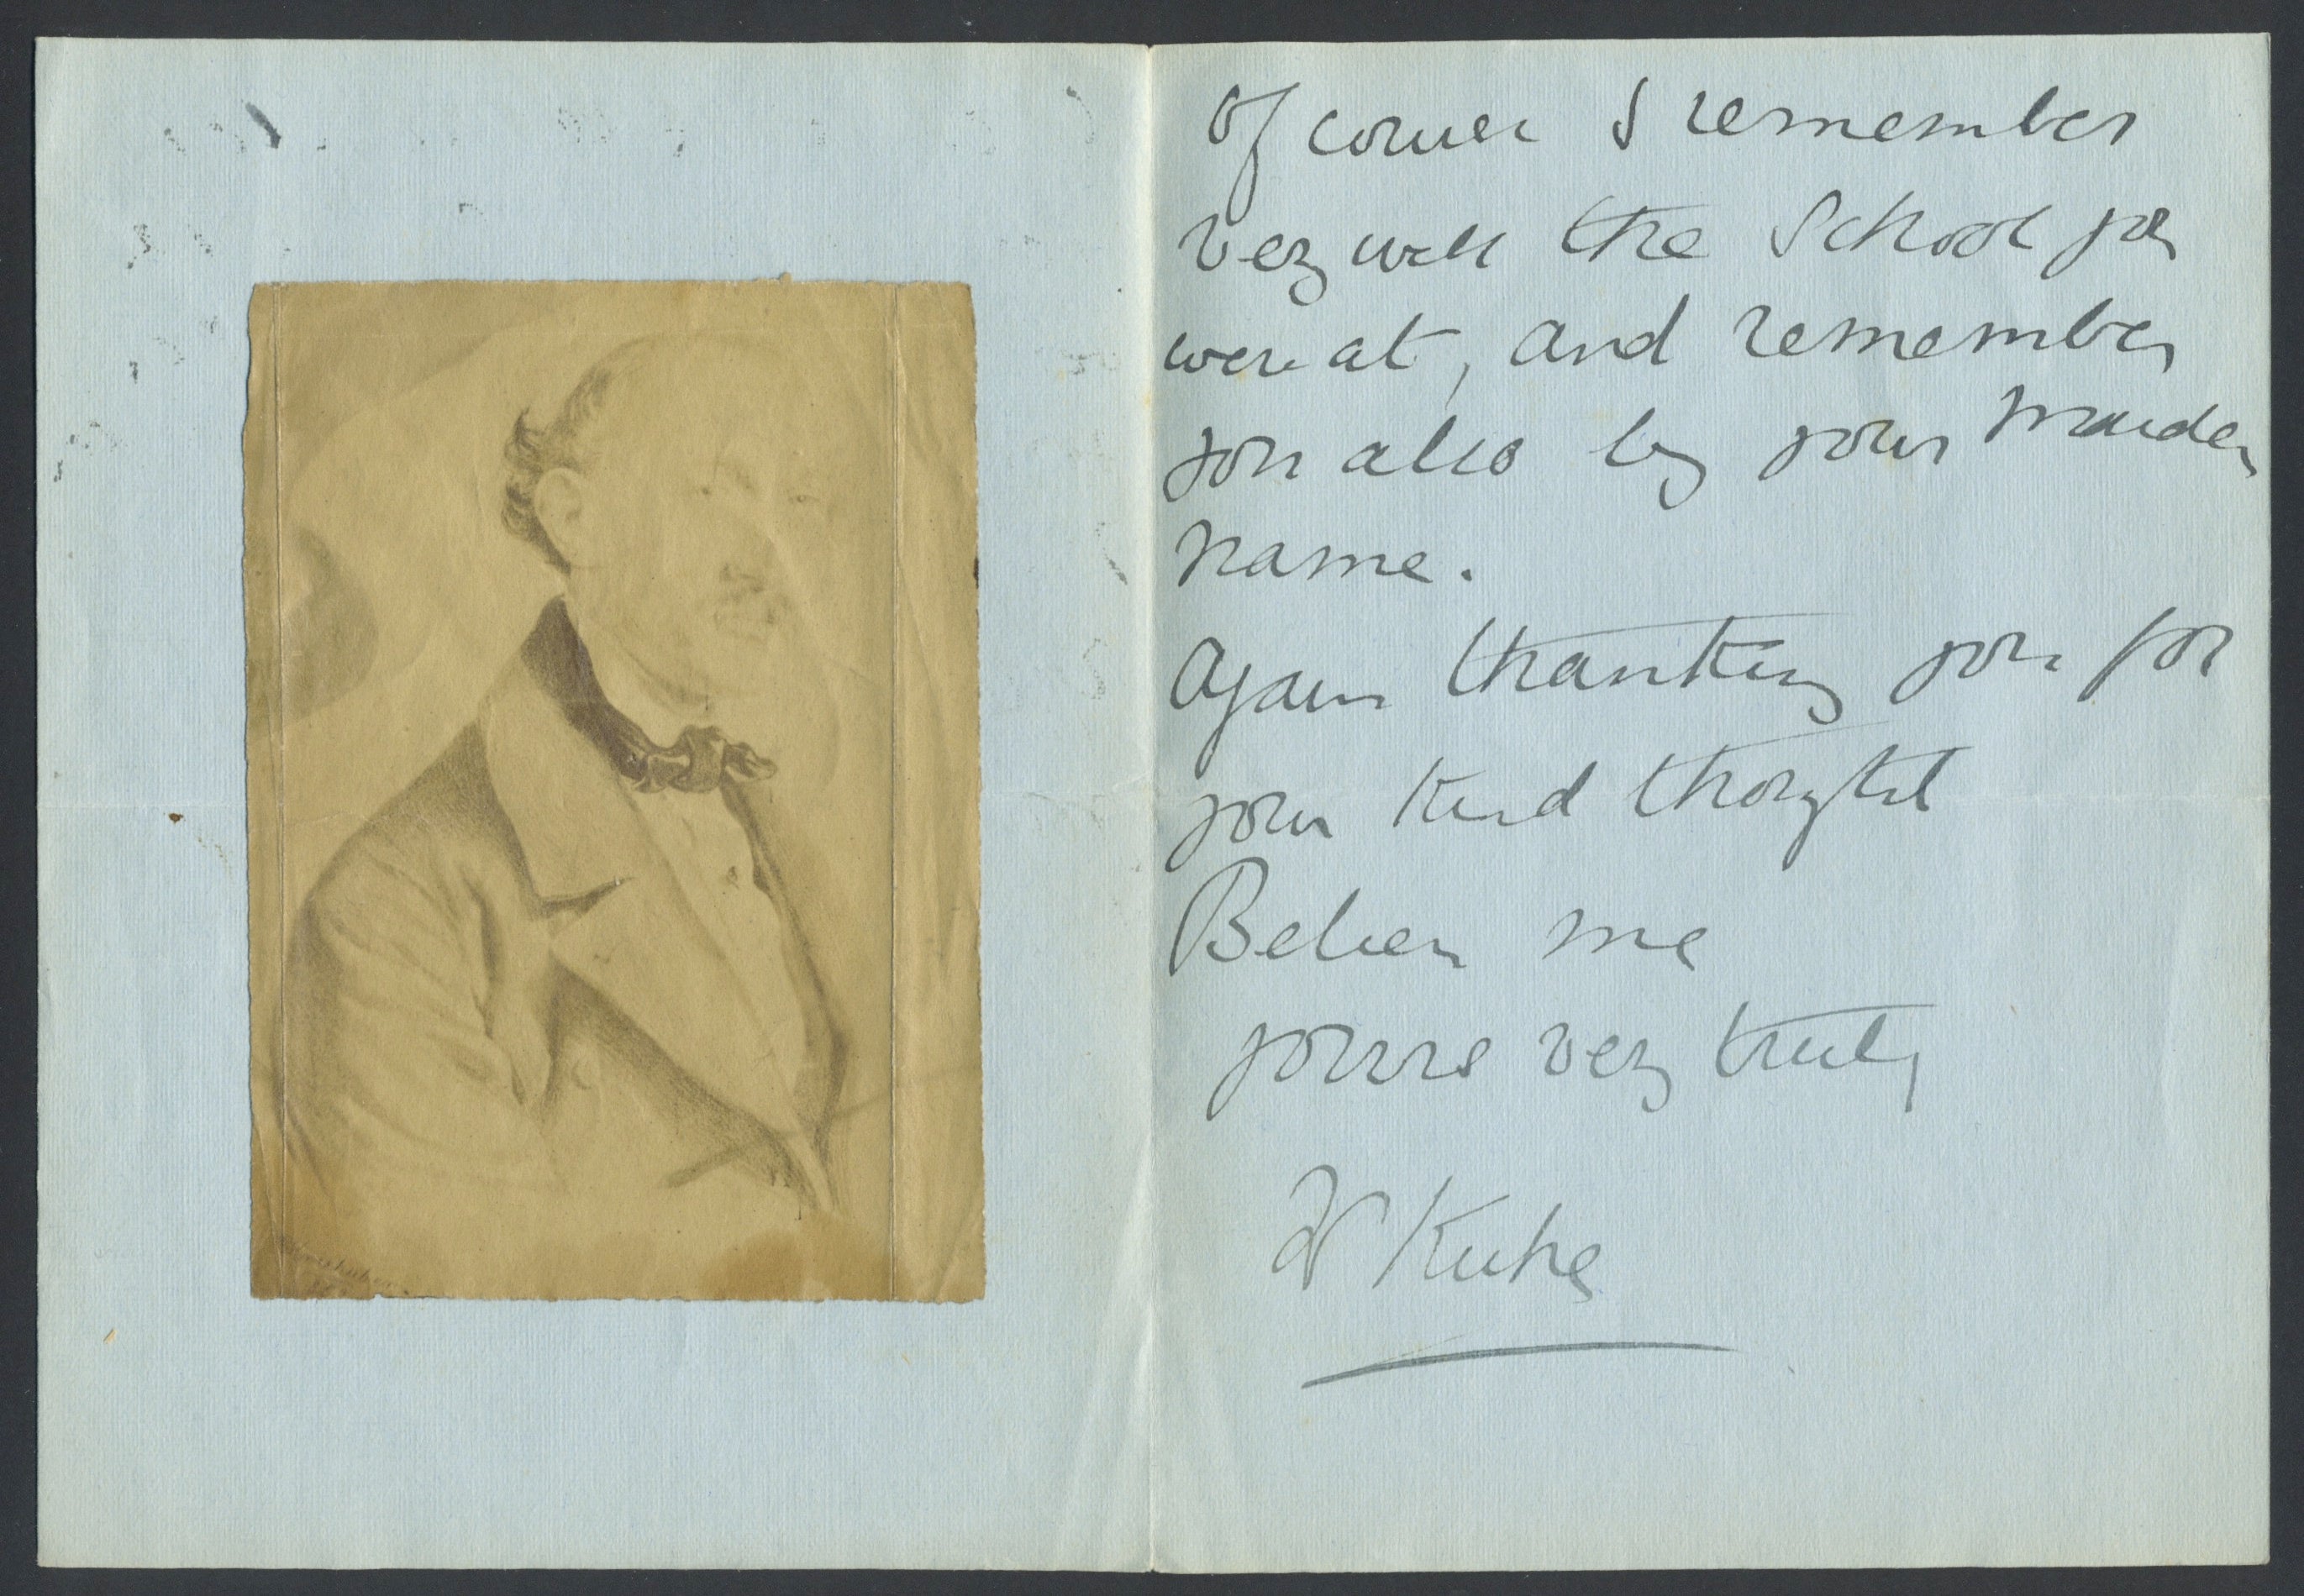 Of course I remember
very well the School you
were at, and remember
you also by your maiden
name.
Again thanking you for
your kind thought
Believe me
yours very truly
W Kuhe